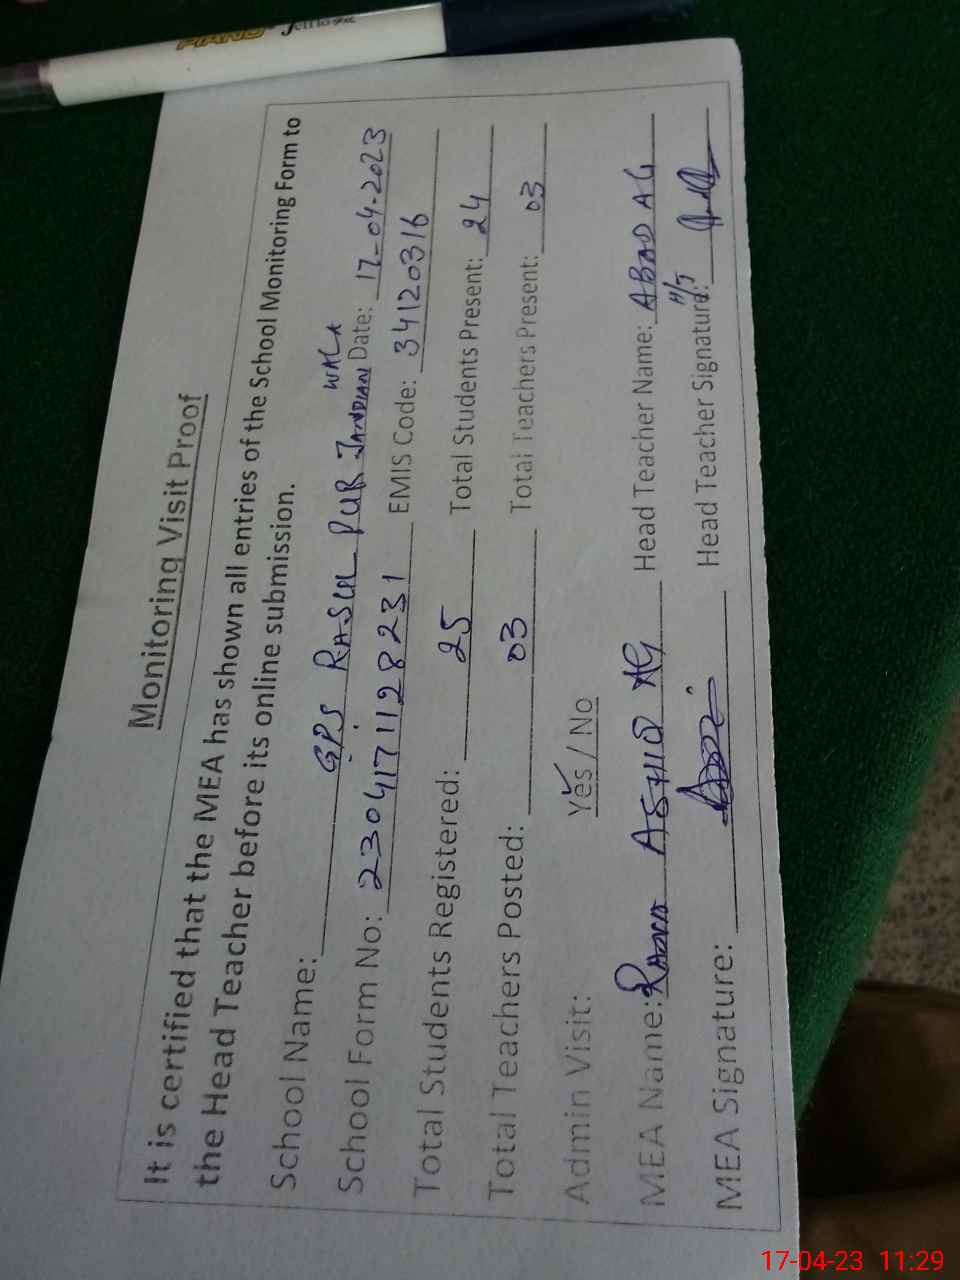 PIANO
Monitoring Visit Proof
It is certified that the MEA has shown all entries of the School Monitoring Form to
the Head Teacher before its online submission.
School Name: GPS RASUL PUR JANDIAN WALA Date: 17-04-2023
School Form No: 2304171128231 EMIS Code: 34120316
Total Students Registered: 25 Total Students Present: 24
Total Teachers Posted: 03 Total Teachers Present: 03
Admin Visit: Yes / No
MEA Name: Head Teacher Name: ABAD ALI
MEA Signature: Head Teacher Signature:
17-04-23 11:29